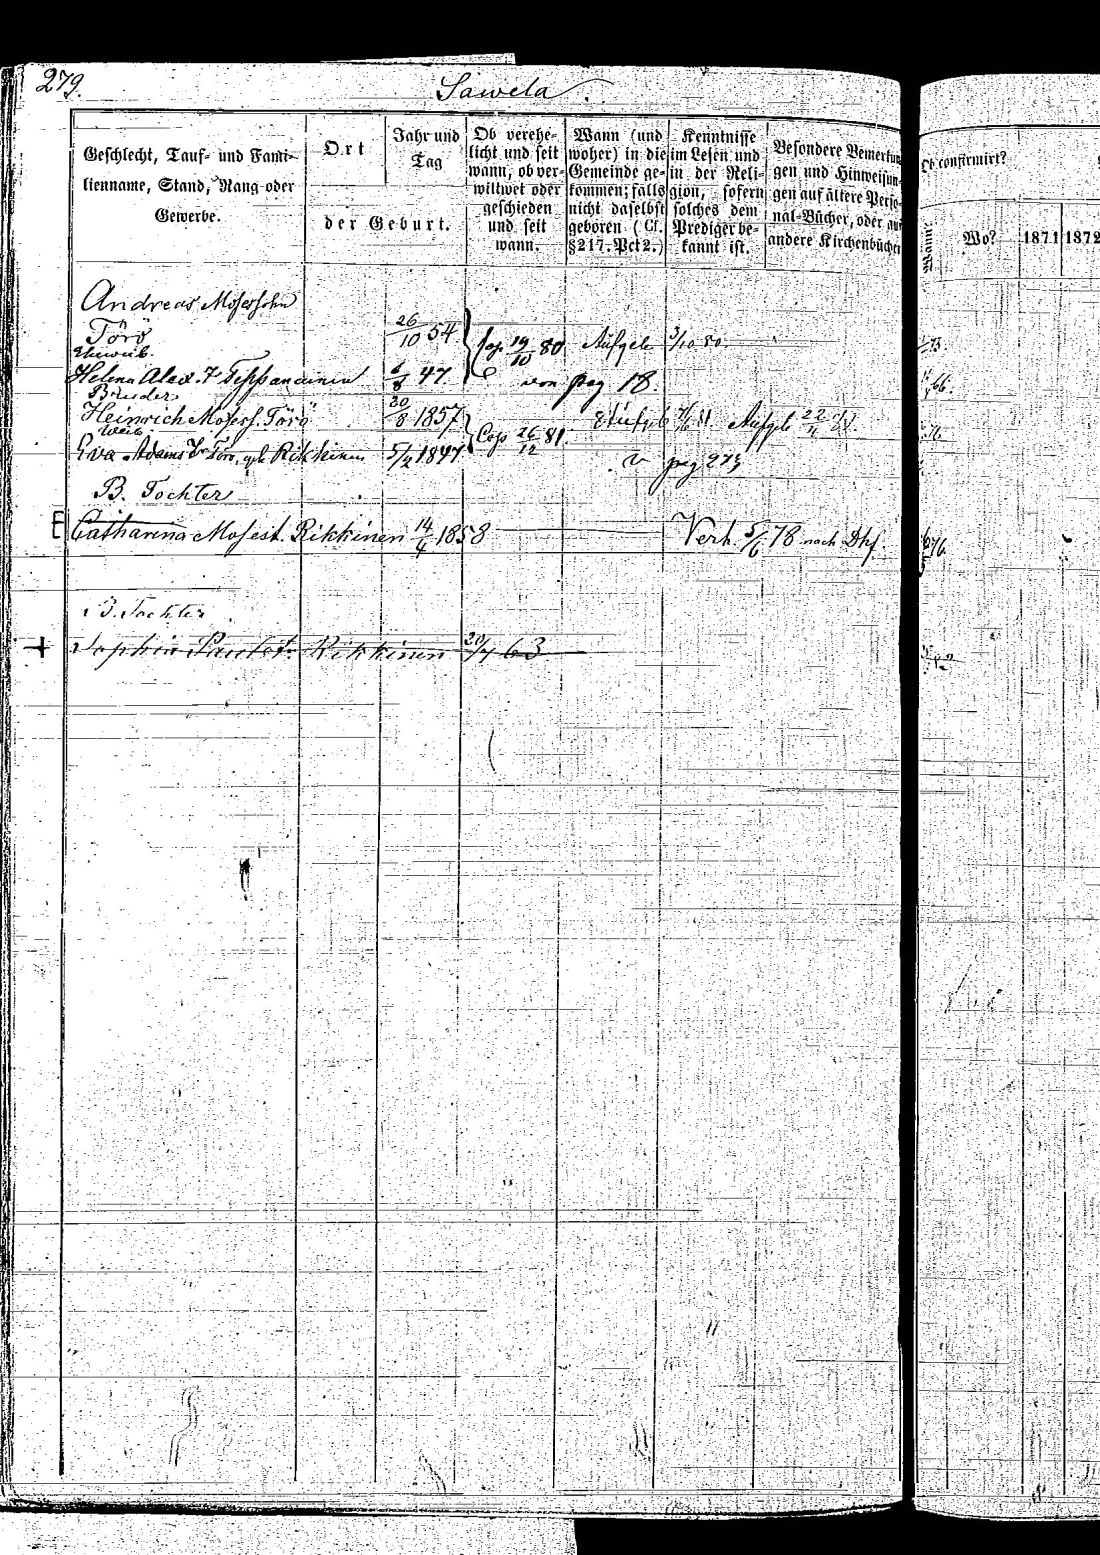 279.
Sawela.
Geschlecht, Tauf- und Fami-
lienname, Stand, Rang oder
Gewerbe.
Ort
Jahr und
Tag
der Geburt.
Ob verehe-
licht und seit
wann, ob ver-
wittwet oder
geschieden
und seit
wann.
Wann (und
woher) in die
Gemeinde ge-
kommen; falls
nicht daselbst
geboren (Cf.
§217. Pct 2.)
Kenntnisse
im Lesen und
in der Reli-
gion, sofern
solches dem
Prediger be-
kannt ist.
Besondere Bemerkun
gen und Hinweisun-
gen auf ältere Perso-
nal-Bücher, oder auf
andere Kirchenbücher
Ob confirmirt?
Wann?
Wo?
1871
1872
Andreas Mosessohn
Törö 26/10 54 Cop. 19/10 80 Aufgeb 3/10 80.
Eheweib.
Helena Alex. T 47. von pag 18.
Bruder
Heinrich Mosess. Törö 20/8 1857 Cop 26/12 81.
Weib
Eva Adams Tr Törö, geb Rikkinen 5/2 1847 v pag 273
B. Tochter
E Catharina Mosest. Rikkinen 14/4 1858 Verh. 5/6 78 nach Dhf.
B. Tochter
+ Sophia Paulst. Rikkinen 20/7 63